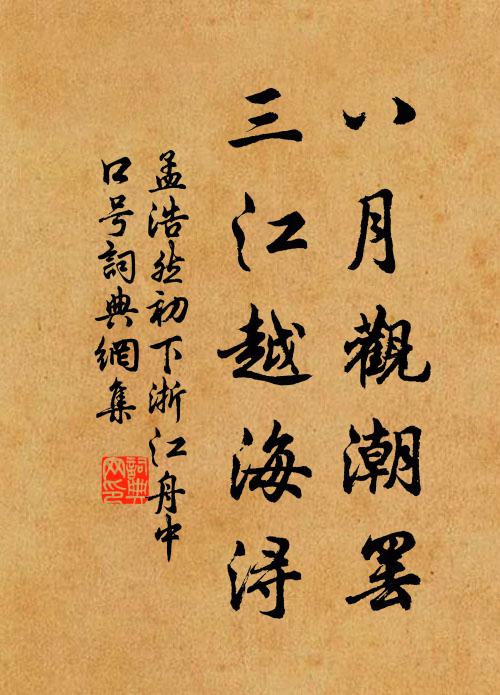 八月觀潮罷
三江越海浔
孟浩然初下浙江舟中
口号詞典網集
詞典